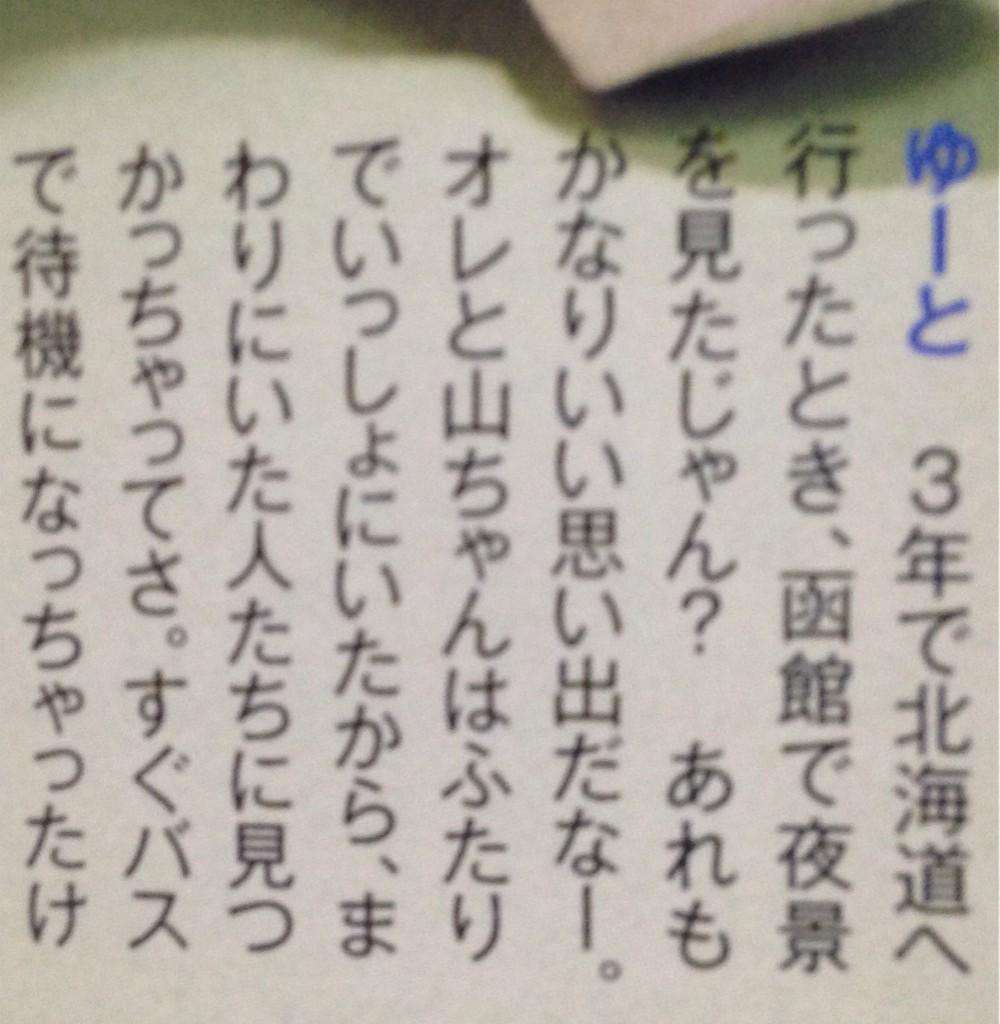 ゆーと　3年で北海道へ
行ったとき、函館で夜景
を見たじゃん？　あれも
かなりいい思い出だなー。
オレと山ちゃんはふたり
でいっしょにいたから、ま
わりにいた人たちに見つ
かっちゃってさ。すぐバス
で待機になっちゃったけ